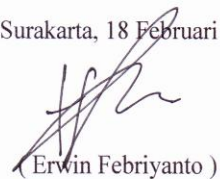 Surakarta, 18 Februari
( Erwin Febriyanto )